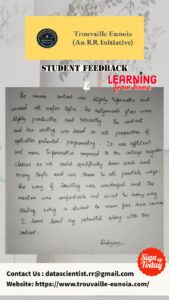 Trouvaille Eunoia
(An RR Initiative)
STUDENT FEEDBACK
LEARNING
from home
The course content was highly informative and
covered all major topics. The assignments given were
highly productive and interesting. The content
and the coding was based on all perspective of
application oriented programming. It was efficient
and more informative compared to the college regular
classes as we could specifically learn each and
every topic and use them in all possible ways.
The way of teaching was wonderful and the
mentor was comfortable and sweet in many ways.
Having
a student to learn for two courses
I have learnt my potential along with the
content.
Sign up
Today
Contact Us : datascientist.rr@gmail.com
Website: https://www.trouvaille-eunoia.com/